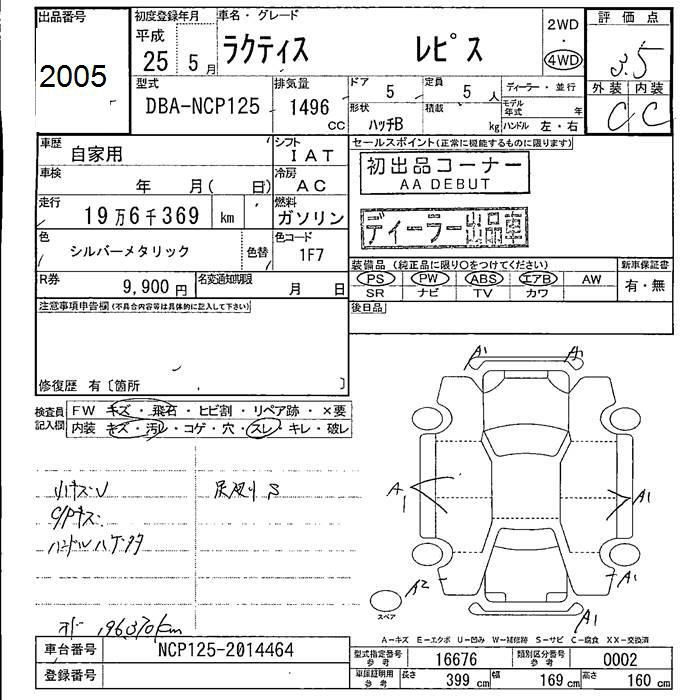 出品番号 初度登録年月 車名・グレード 評価点
2005 平成 25 5月 ラクティス レピス 2WD・4WD 3.5
型式 排気量 ドア 5 定員 5人 ディーラー・並行 外装 内装
DBA-NCP125 1496 CC 形状 ハッチB 積載 kg モデル年式 年 C C
ハンドル 左・右
車歴 自家用 シフト IAT セールスポイント(正常に機能するものに限ります)
車検 年 月( 日) 冷房 AC 初出品コーナー
AA DEBUT
走行 19万6千369 km 燃料 ガソリン ディーラー出品車
色 シルバーメタリック 色替 色コード 1F7
装備品(純正品に限り○をつけてください) 新車保証書
R券 9,900円 名変通知期限 月 日 PS PW ABS エアB AW 有・無
SR ナビ TV カワ
注意事項申告欄(不具合内容等は具体的に記入して下さい) 後日品
修復歴 有〔箇所 〕
検査員記入欄 FW キズ・飛石・ヒビ割・リペア跡・×要
内装 キズ・汚レ・コゲ・穴・スレ・キレ・破レ
A1 A1
A1 A1
A2 A1
A1
スペア
196370km
A-キズ E-エクボ U-凹み W-補修跡 S-サビ C-腐食 XX-交換済
車台番号 NCP125-2014464 型式指定番号 参考 16676 類別区分番号 参考 0002
登録番号 車庫証明用 参考 長さ 399cm 幅 169cm 高さ 160cm